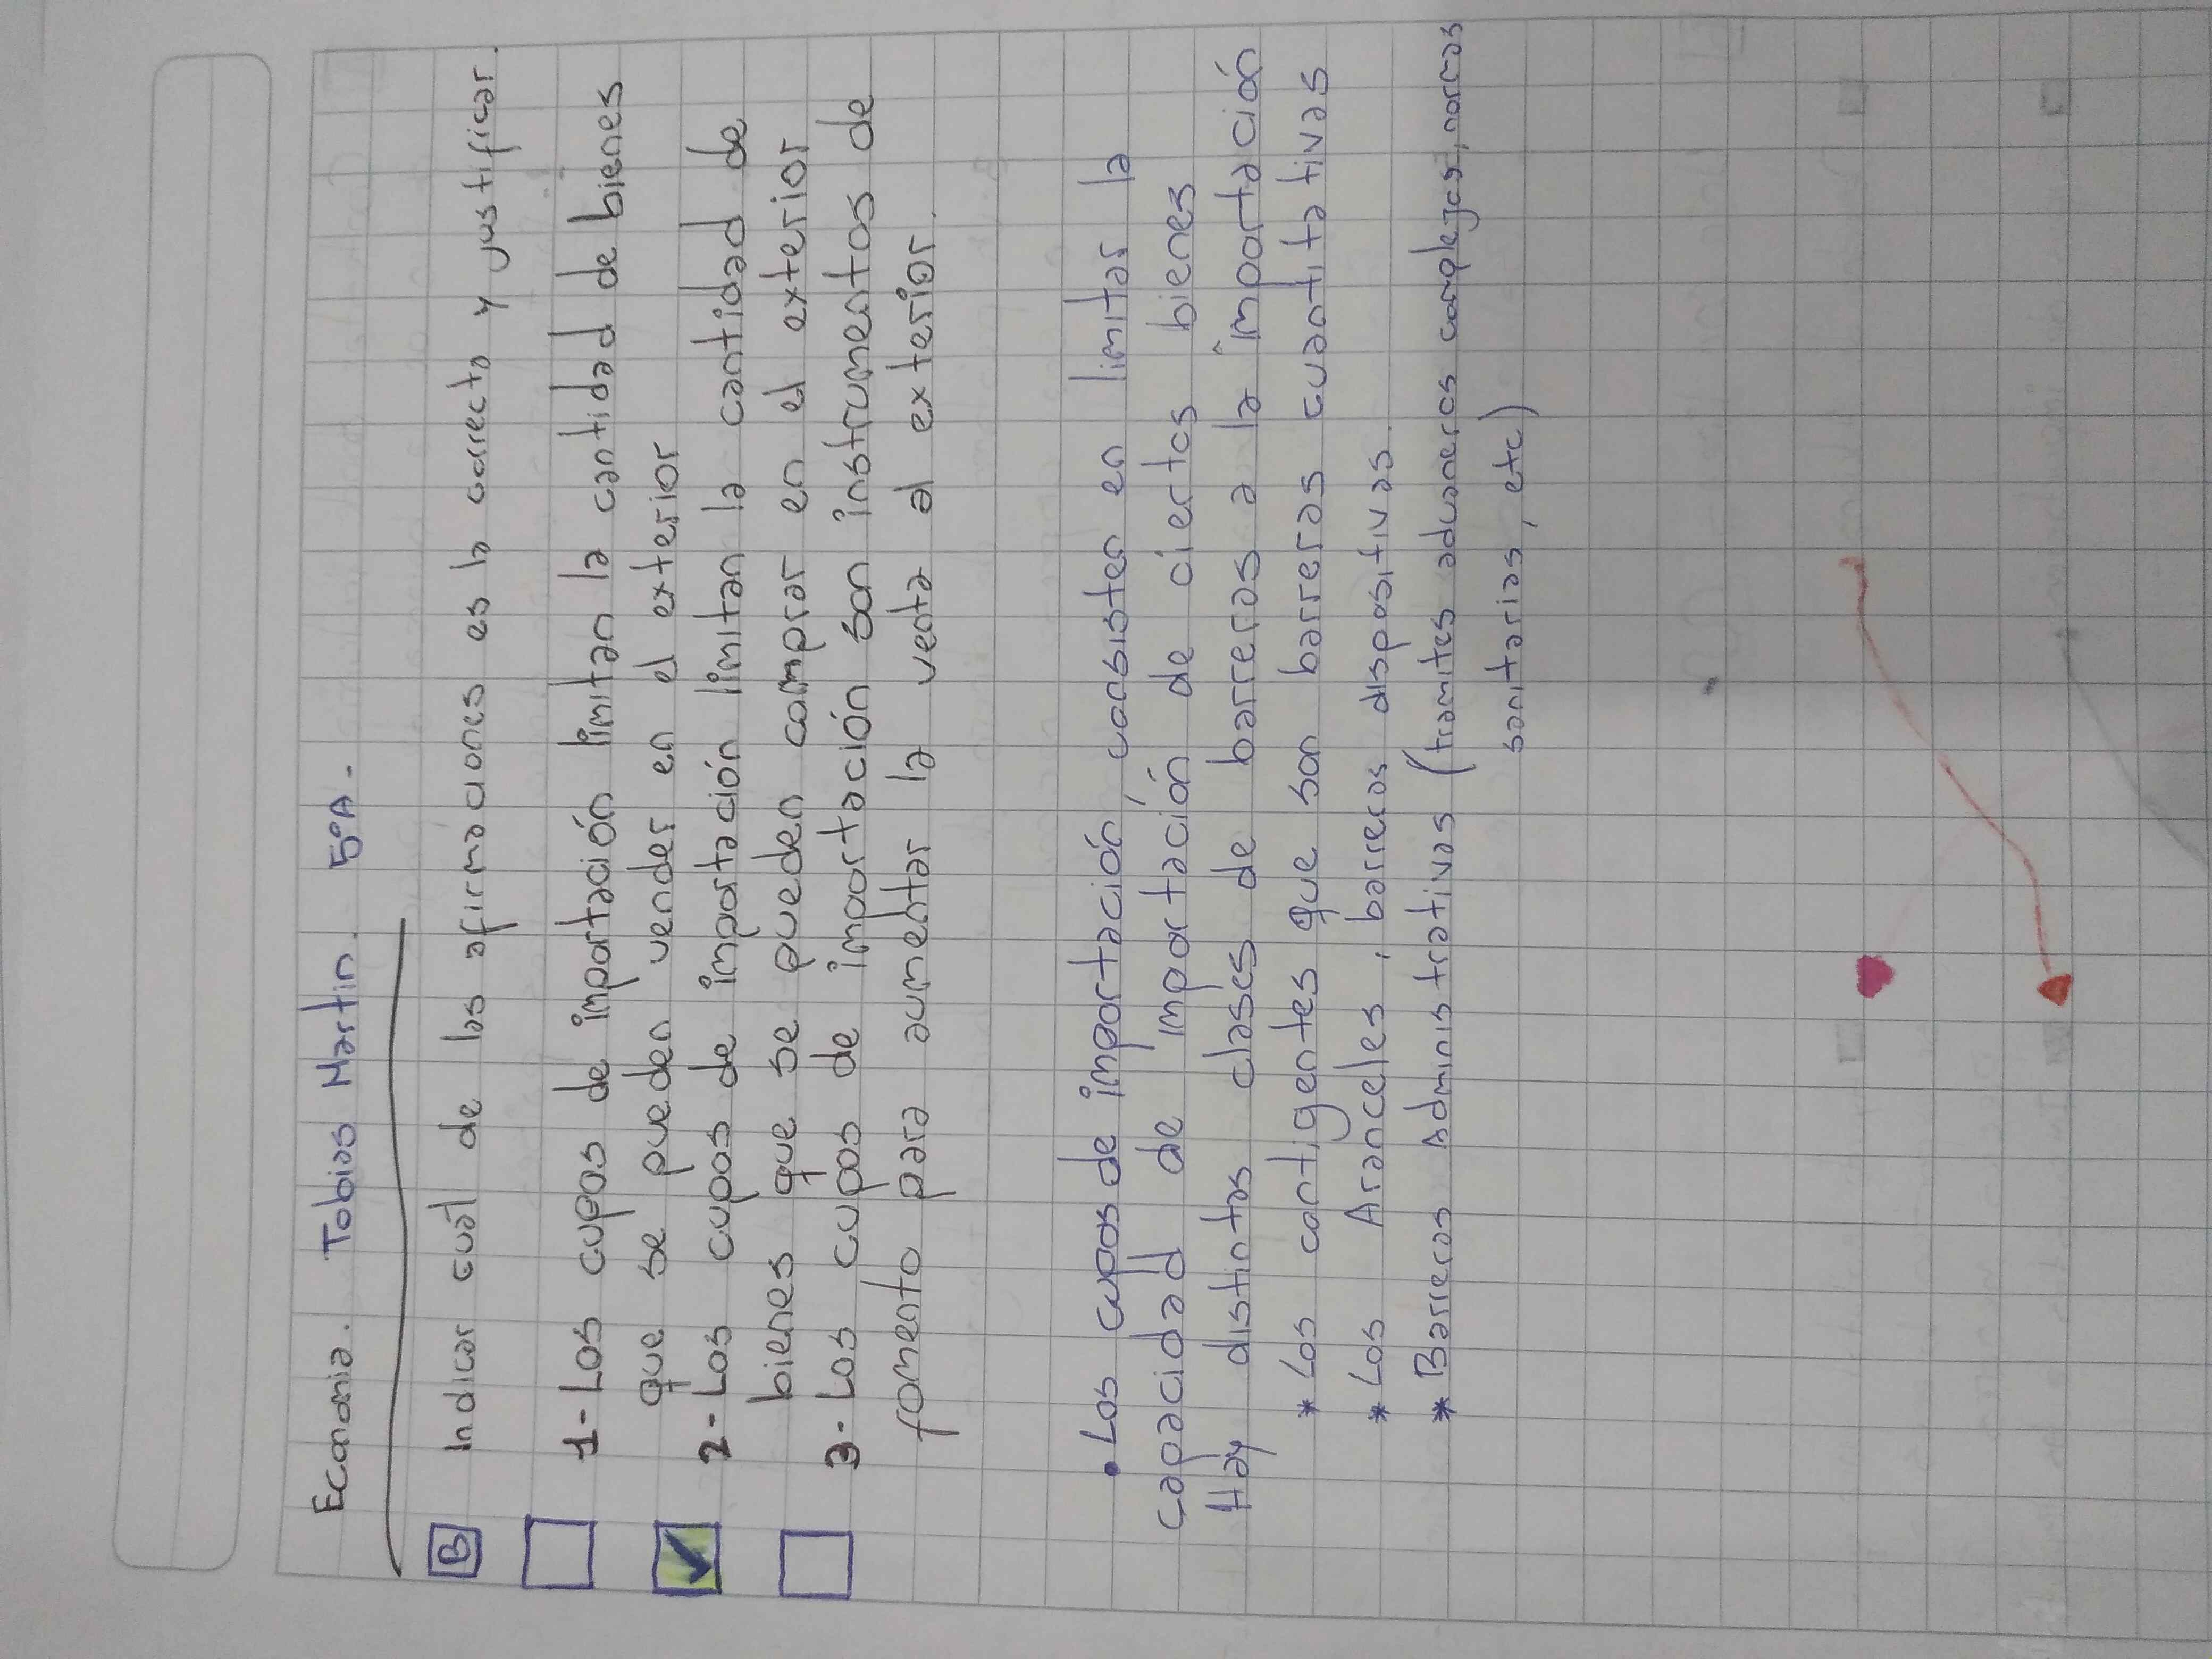 Economia. Tobias Martin. 5°A.
B Indicar cuál de las afirmaciones es la correcta y justificar.
1- Los cupos de importación limitan la cantidad de bienes
que se pueden vender en el exterior
2- Los cupos de importación limitan la cantidad de
bienes que se pueden comprar en el exterior
3- Los cupos de importación son instrumentos de
fomento para aumentar la venta al exterior.
• Los cupos de importación, consisten en limitar la
capacidad de importación de ciertos bienes
Hay distintas clases de barreras a la importación
* Los contigentes que son barreras cuantitativas
* Los Aranceles, barreras dispositivas.
* Barreras Administrativas (tramites aduaneros complejos, normas
sanitarias, etc)